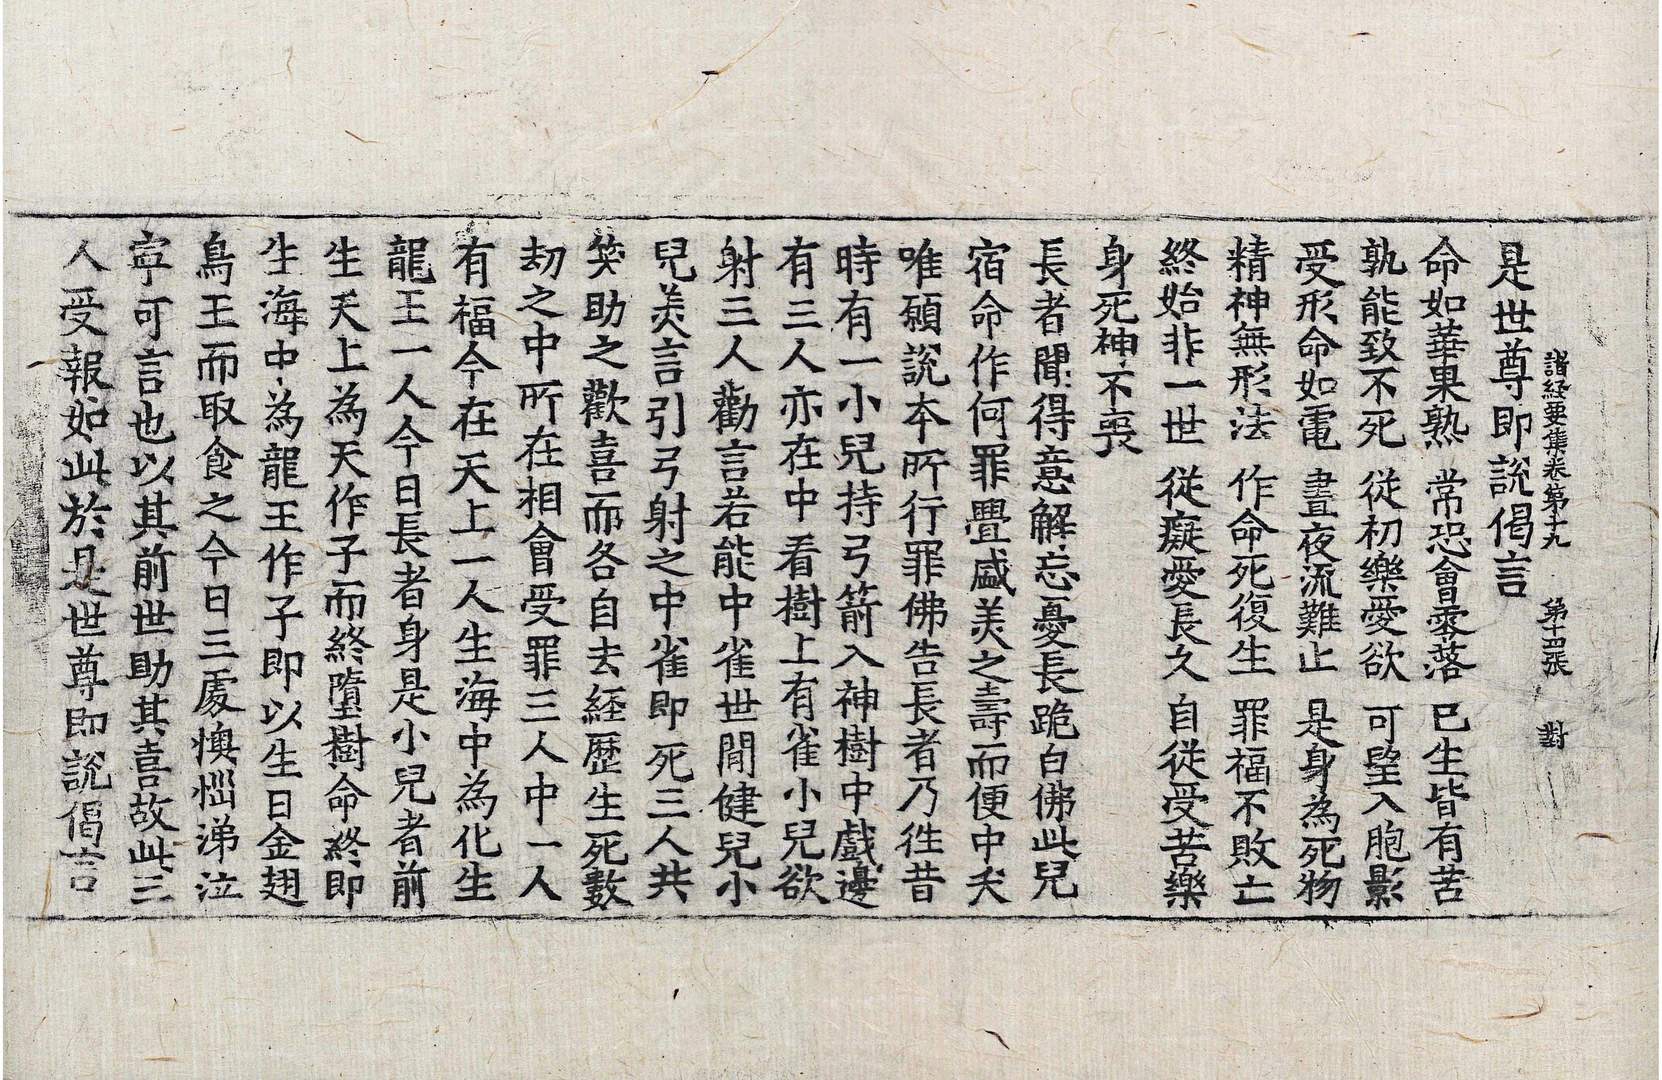 諸経要集卷第十九 第十四張 對
是世尊即說偈言
命如華果熟 常恐會零落 已生皆有苦
孰能致不死 從初樂愛欲 可望入胞影
受形命如電 晝夜流難止 是身為死物
精神無形法 作命死復生 罪福不敗亡
終始非一世 從癡愛長久 自從受苦樂
身死神不喪
長者聞得意解忘憂長跪白佛此兒
宿命作何罪舋盛美之壽而便中夭
唯願說本所行罪佛告長者乃徃昔
時有一小兒持弓箭入神樹中戲邊
有三人亦在中看樹上有雀小兒欲
射三人勸言若能中雀世間健兒小
兒美言引弓射之中雀即死三人共
笑助之歡喜而各自去経歷生死數
劫之中所在相會受罪三人中一人
有福今在天上一人生海中為化生
龍王一人今日長者身是小兒者前
生天上為天作子而終墮樹命終即
生海中為龍王作子即以生日金翅
鳥王而取食之今日三處懊惱涕泣
寧可言也以其前世助其喜故此三
人受報如此於是世尊即說偈言